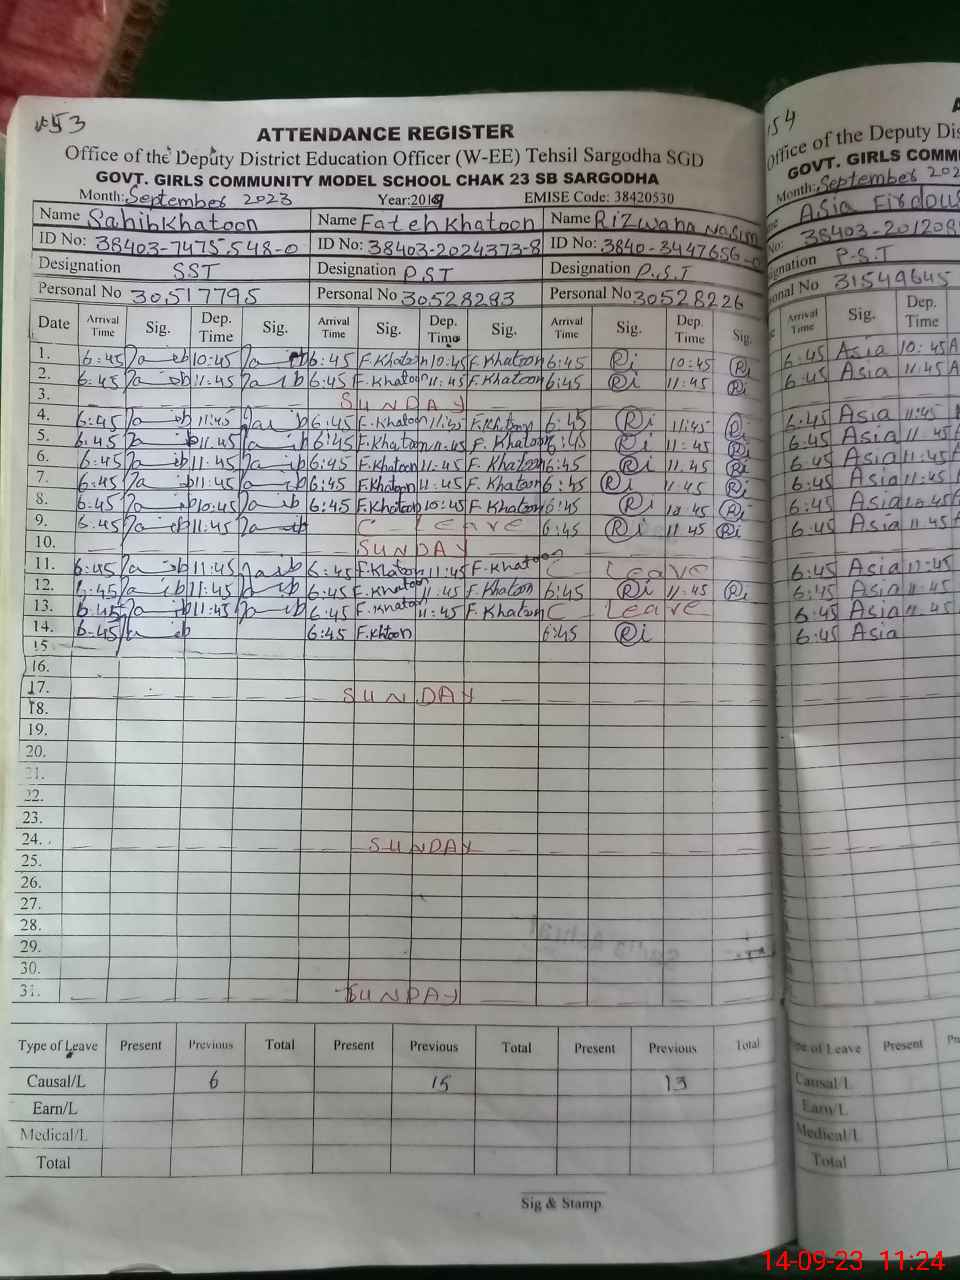 53
ATTENDANCE REGISTER
Office of the Deputy District Education Officer (W-EE) Tehsil Sargodha SGD
GOVT. GIRLS COMMUNITY MODEL SCHOOL CHAK 23 SB SARGODHA
Month: September 2023 Year:2019 EMISE Code: 38420530
Name Sahib Khatoon Name Fateh Khatoon Name Rizwana Nasim
ID No: 38403-7475548-0 ID No: 38403-2024373-8 ID No: 3840-3447656-0
Designation SST Designation P.S.T Designation P.S.T
Personal No 30517795 Personal No 30528283 Personal No 30528226
Date Arrival Time Sig. Dep. Time Sig. Arrival Time Sig. Dep. Time Sig. Arrival Time Sig. Dep. Time Sig.
1. 6:45 10:45 6:45 F.Khatoon 10:45 F.Khatoon 6:45 Ri 10:45 Ri
2. 6:45 11:45 6:45 F.Khatoon 11:45 F.Khatoon 6:45 Ri 11:45 Ri
3. SUNDAY
4. 6:45 11:45 6:45 F.Khatoon 11:45 F.Khatoon 6:45 Ri 11:45 Ri
5. 6:45 11:45 6:45 F.Khatoon 11:45 F.Khatoon 6:45 Ri 11:45 Ri
6. 6:45 11:45 6:45 F.Khatoon 11:45 F.Khatoon 6:45 Ri 11:45 Ri
7. 6:45 11:45 6:45 F.Khatoon 11:45 F.Khatoon 6:45 Ri 11:45 Ri
8. 6:45 10:45 6:45 F.Khatoon 10:45 F.Khatoon 6:45 Ri 10:45 Ri
9. 6:45 11:45 C Leave 6:45 Ri 11:45 Ri
10. SUNDAY
11. 6:45 11:45 6:45 F.Khatoon 11:45 F.Khatoon C Leave
12. 6:45 11:45 6:45 F.Khatoon 11:45 F.Khatoon 6:45 Ri 11:45 Ri
13. 6:45 11:45 6:45 F.Khatoon 11:45 F.Khatoon C Leave
14. 6:45 6:45 F.Khtoon 6:45 Ri
15
16.
17. SUNDAY
18.
19.
20.
21.
22.
23.
24. SUNDAY
25.
26.
27.
28.
29.
30.
31. SUNDAY
Type of Leave Present Previous Total Present Previous Total Present Previous Total
Causal/L 6 15 13
Earn/L
Medical/L
Total
Sig & Stamp
154
Office of the Deputy Dis
GOVT. GIRLS COMM
Month: September 202
Asia Firdous
No: 38403-201208
P.S.T
31549645
Arrival Time Sig. Dep. Time
6:45 Asia 10:45
6:45 Asia 11:45
6:45 Asia 11:45
6:45 Asia 11:45
6:45 Asia 11:45
6:45 Asia 11:45
6:45 Asia 10:45
6:45 Asia 11:45
6:45 Asia 11:45
6:45 Asia 11:45
6:45 Asia 11:45
6:45 Asia
of Leave Present
Causal/L
Earn/L
Medical/L
Total
14-09-23 11:24